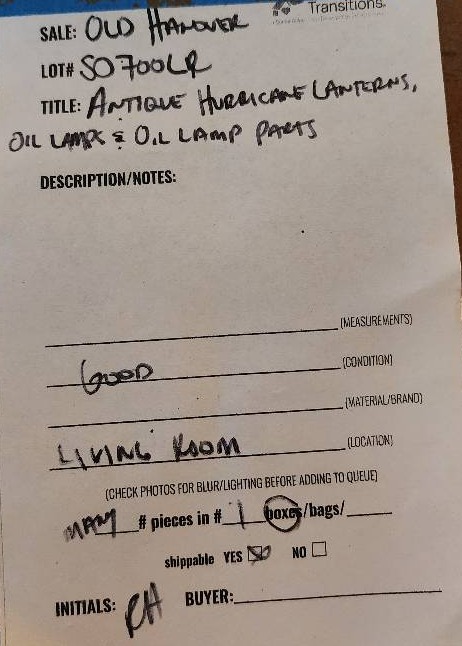 Transitions.
SALE: OLD HANOVER
LOT# SO700LR
TITLE: ANTIQUE HURRICANE LANTERNS,
OIL LAMPS & OIL LAMP PARTS
DESCRIPTION/NOTES:
(MEASUREMENTS)
GOOD (CONDITION)
(MATERIAL/BRAND)
LIVING ROOM (LOCATION)
(CHECK PHOTOS FOR BLUR/LIGHTING BEFORE ADDING TO QUEUE)
MANY # pieces in # 1 boxes/bags/
shippable YES NO
INITIALS: RH BUYER: